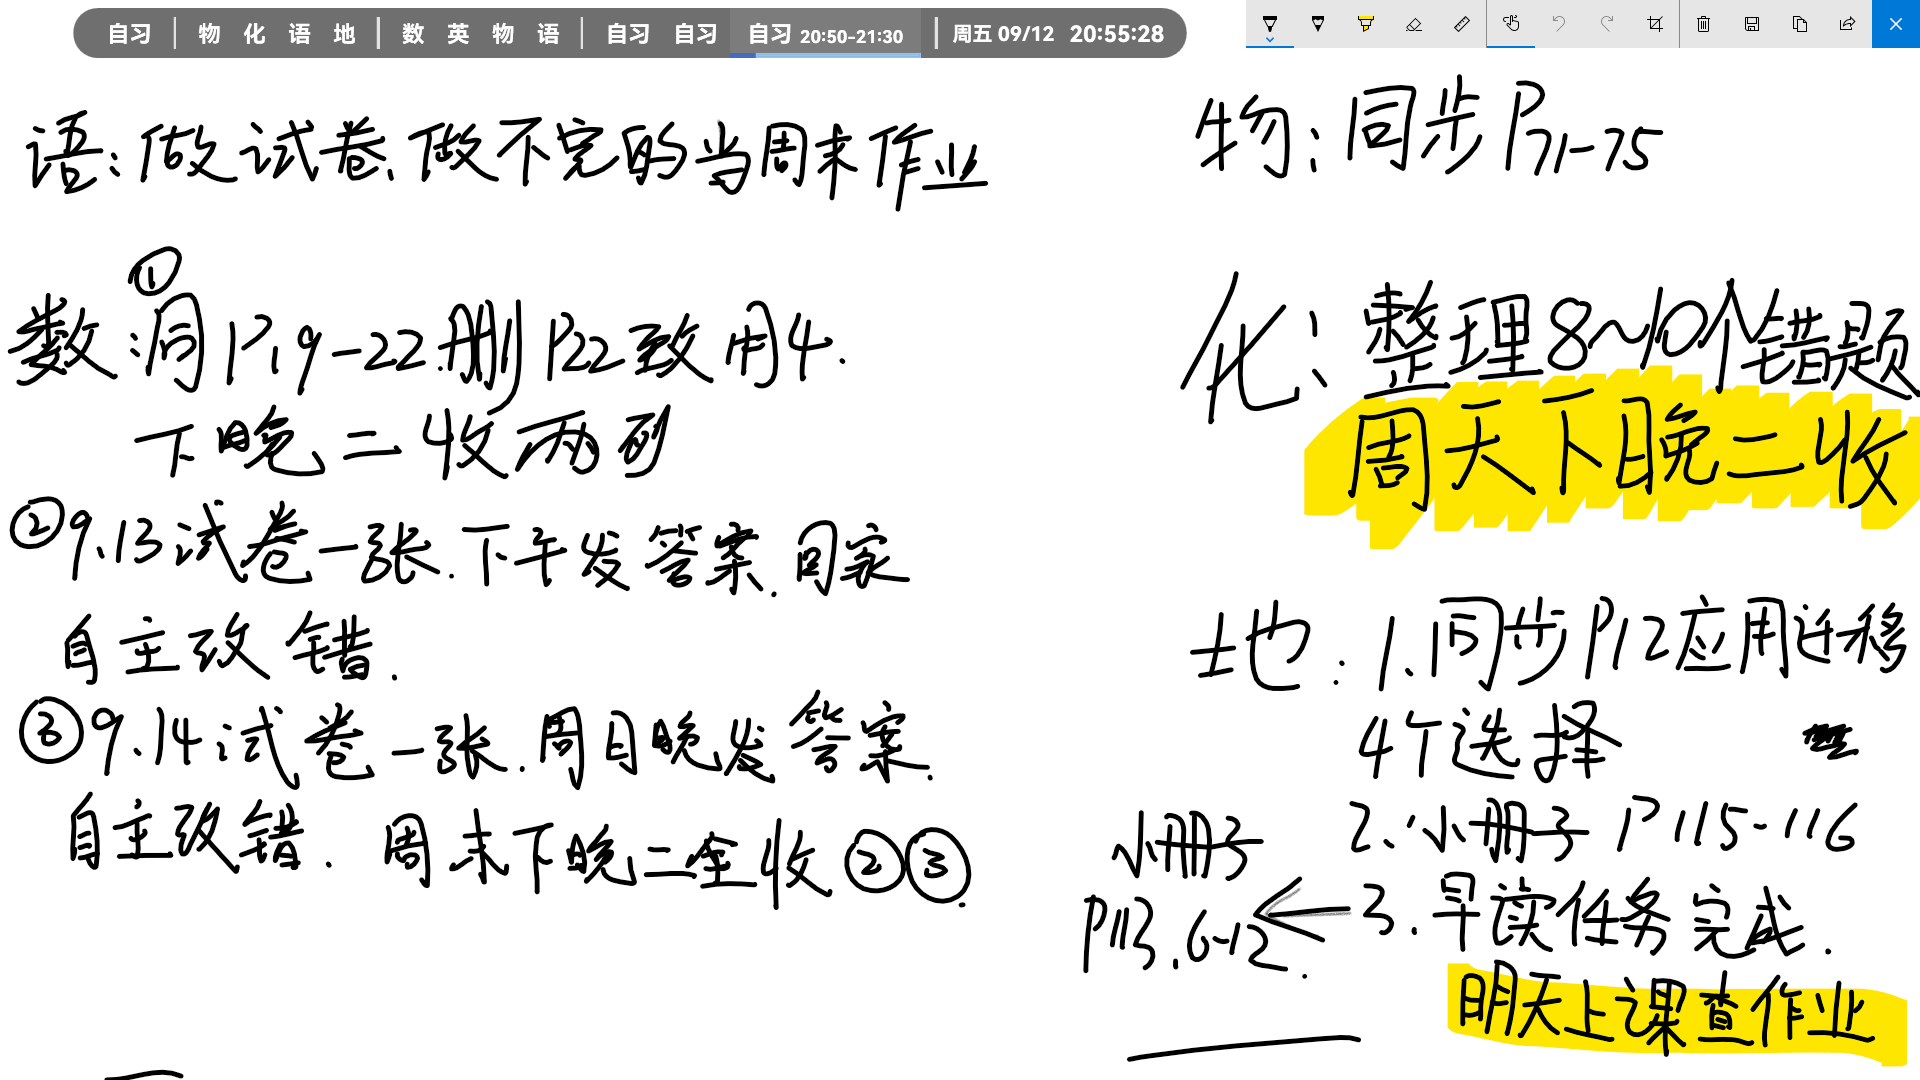 自习 | 物 化 语 地 | 数 英 物 语 | 自习 自习 自习 20:50-21:30 | 周五 09/12 20:55:28
语:做试卷、做不完的当周末作业
数:①同P19-22.删P22致用4.
下晚二收两列
②9.13试卷一张.下午发答案.回家
自主改错.
③9.14试卷一张.周日晚发答案.
自主改错.周末下晚二全收②③.
物:同步P71-75
化:整理8~10个错题
周天下晚二收
地:1.同步P12应用迁移
4个选择
2.小册子P115-116
3.早读任务完成.
小册子
P113.6-12.
明天上课查作业